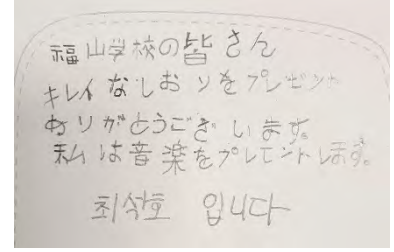 福山学校の皆さん
キレイなしおりをプレゼント
ありがとうございます。
私は音楽をプレモントします。
최석호 입니다